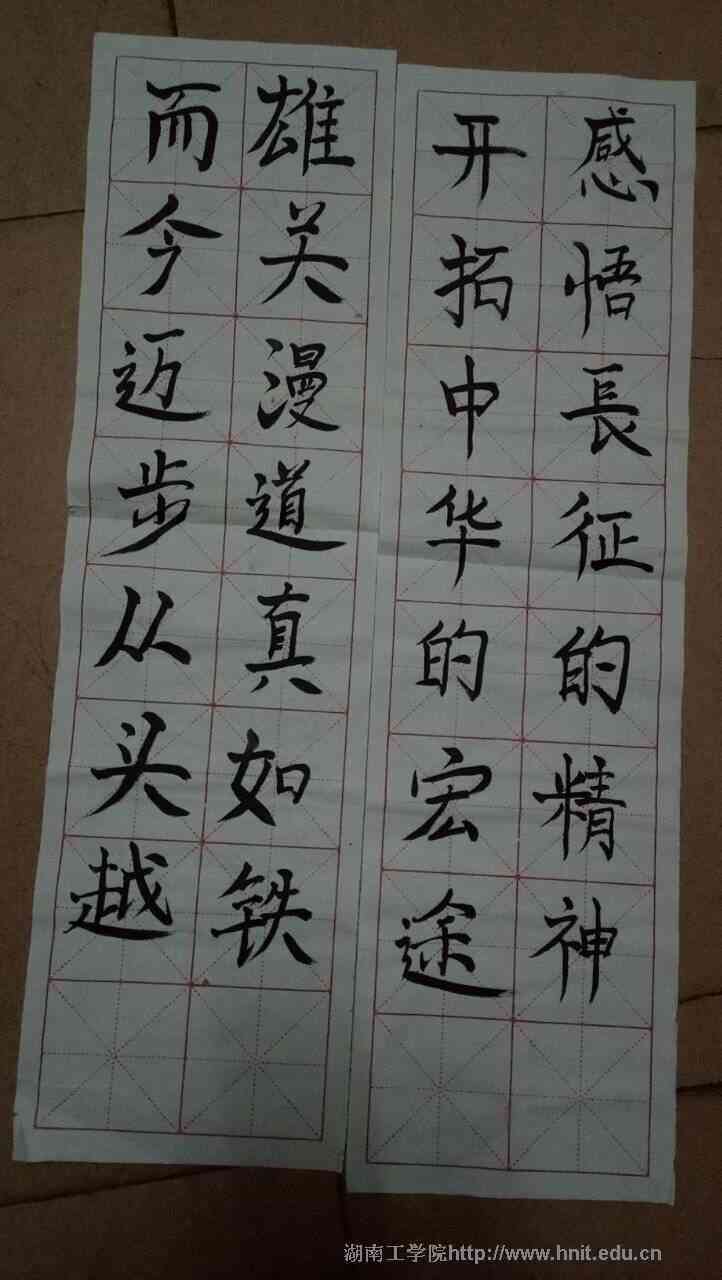 感悟長征的精神
开拓中华的宏途
雄关漫道真如铁
而今迈步从头越
湖南工学院http://www.hnit.edu.cn